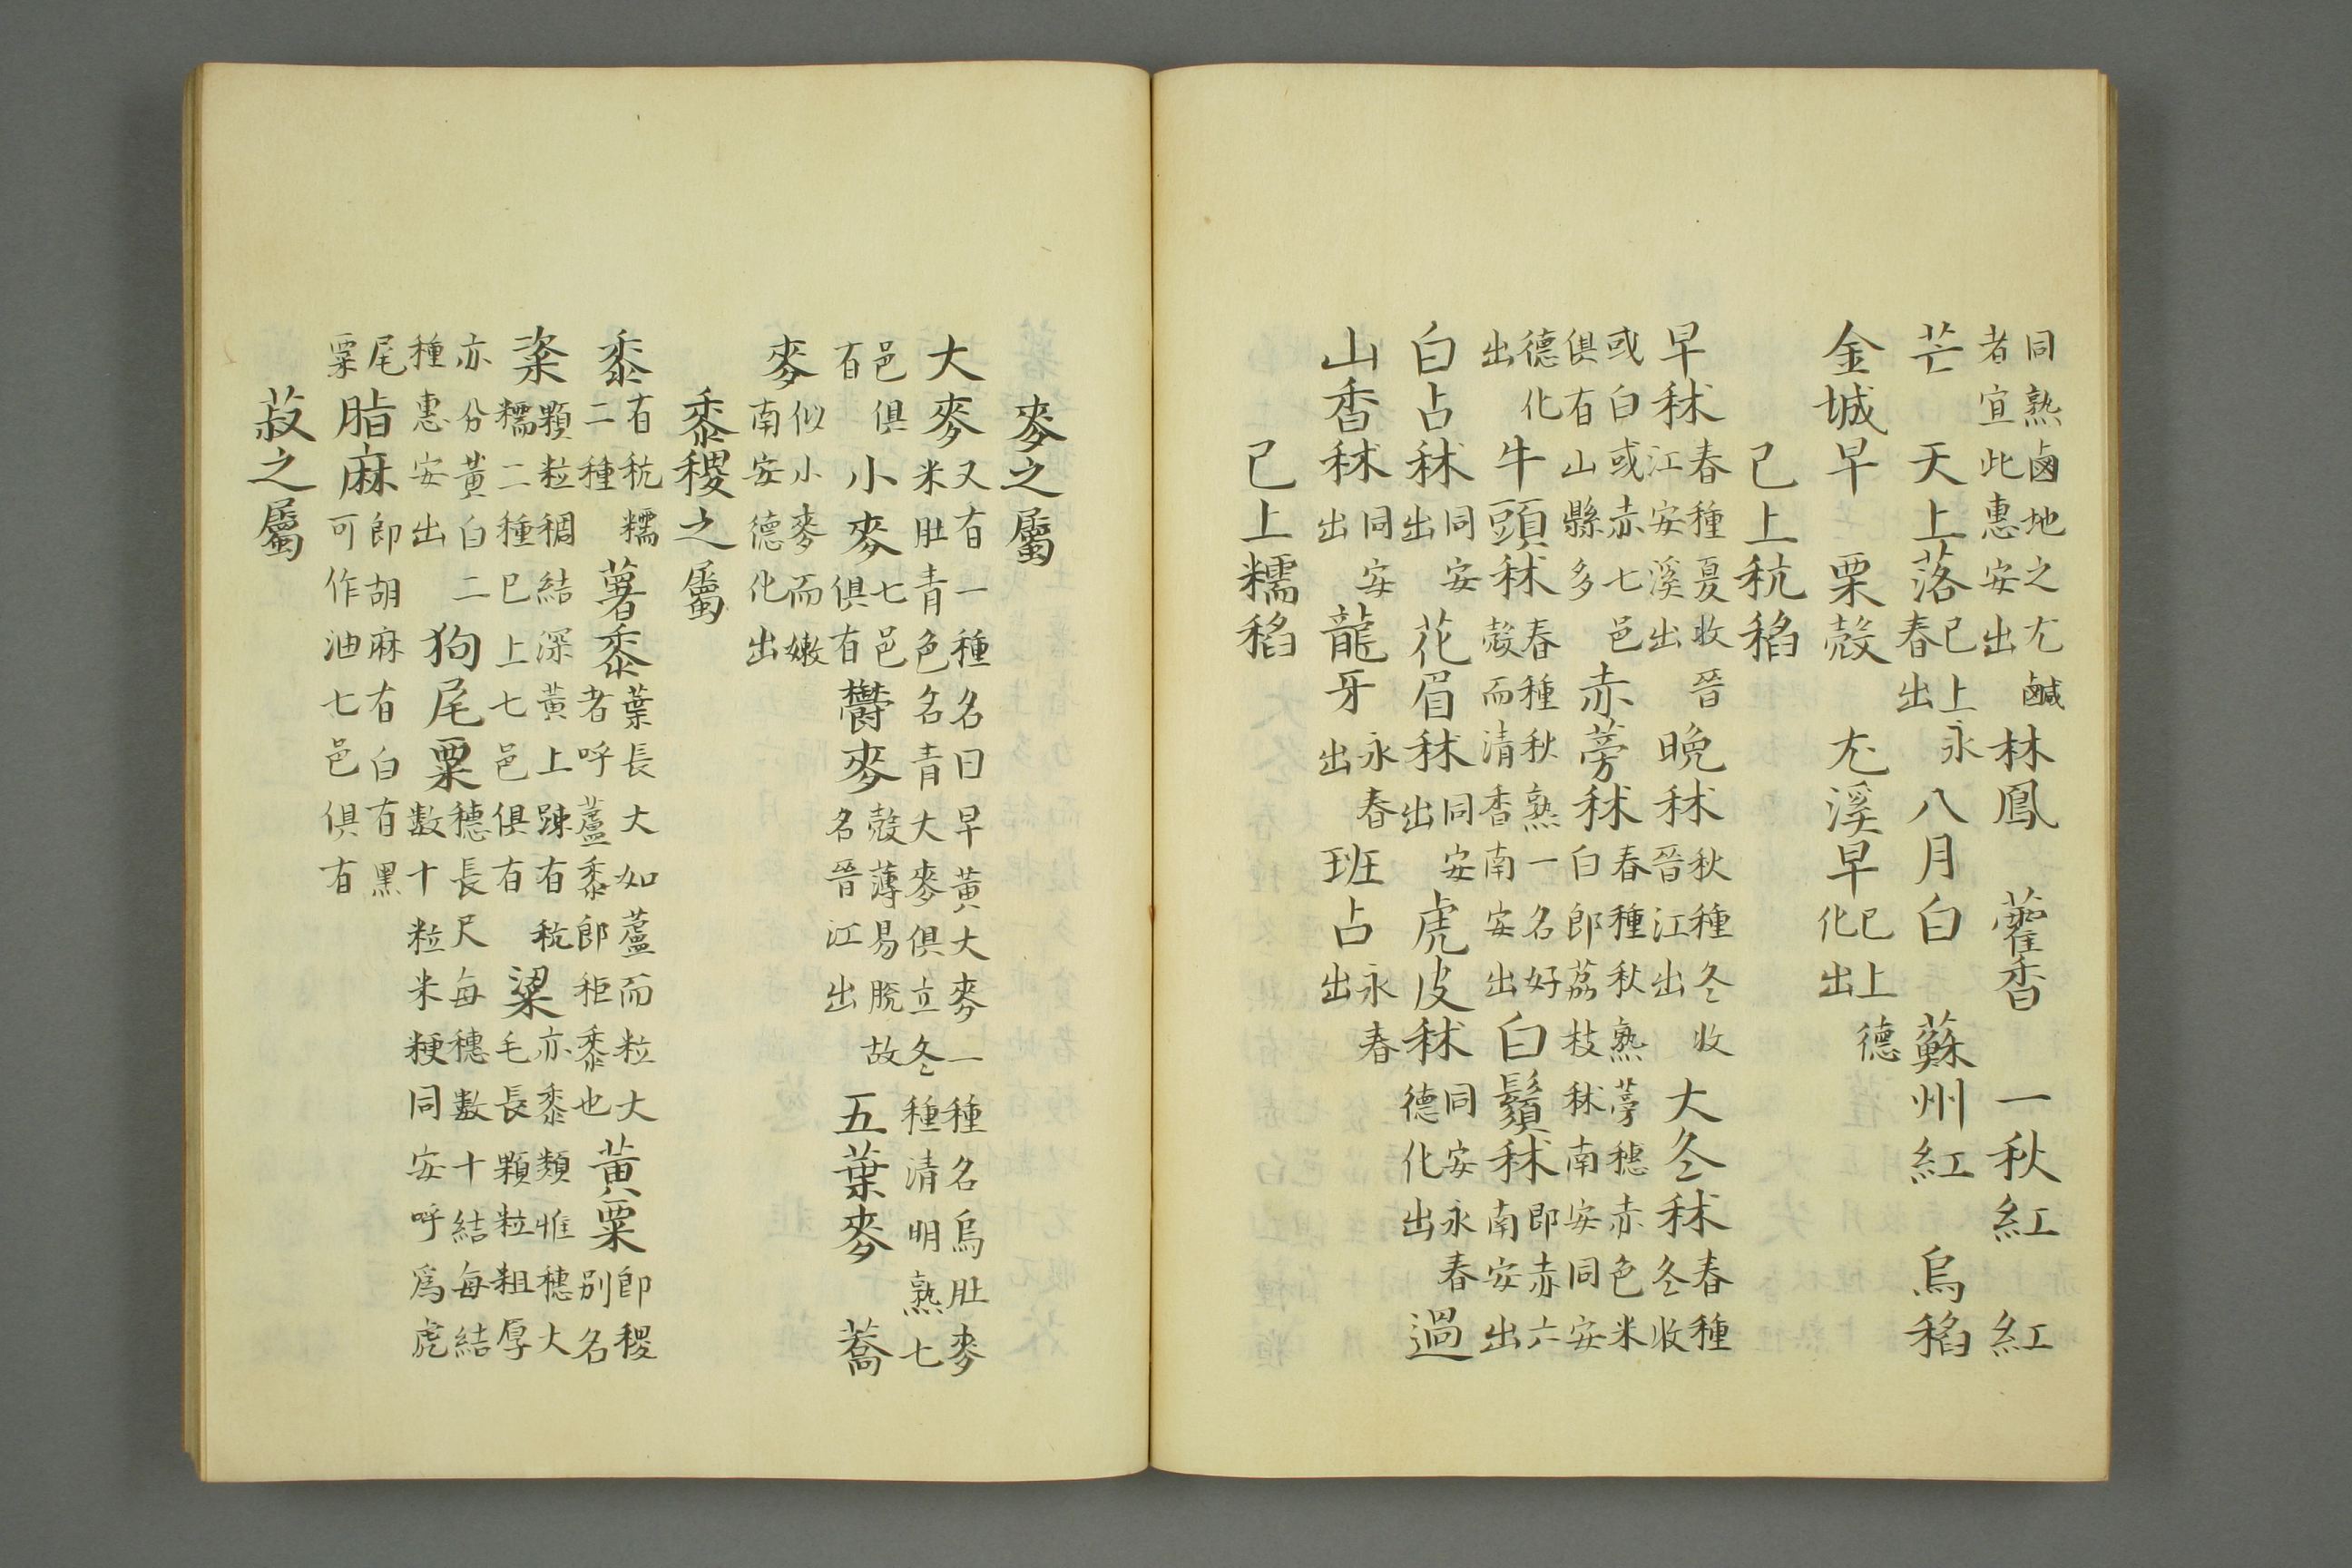 同熟鹵地之尤鹹者宜此惠安出林鳳　藿香　一秋紅　紅
芒　天上落已上永春出八月白　蘇州紅　烏稻
金城早　栗殼　尤溪早已上德化出
已上秔稻
早秫春種夏收晉江安溪出晚秫秋種冬收晉江出大冬秫春種冬收
或白或赤七邑俱有山縣多赤蒡秫春種秋熟蒡穗赤色米白郎荔枝秫南安同安
德化出牛頭秫春種秋熟一名好殼而清香南安出白鬚秫即赤六南安出
白占秫同安出花眉秫同安出虎皮秫同安永春德化出過
山香秫同安出龍牙永春出班占永春出
已上糯稻
麥之屬
大麥又有一種名曰早黃大麥一種名烏肚麥米肚青色名青大麥俱立冬種清明熟七
邑俱有小麥七邑俱有欝麥殼薄易脫故名晉江出五葉麥　蕎
麥似小麥而嫩南安德化出
黍稷之屬
黍有秔糯二種薯黍葉長大如蘆而粒大者呼蘆黍郎秬黍也黃粟即稷別名
粢顆粒稠結深黃上踈有秔糯二種巳上七邑俱有粱亦黍類惟穗大毛長顆粒粗厚
亦分黃白二種惠安出狗尾粟穗長尺每穗數十結每結数十粒米粳同安呼爲虎
尾粟脂麻即胡麻有白有黑可作油七邑俱有
菽之屬